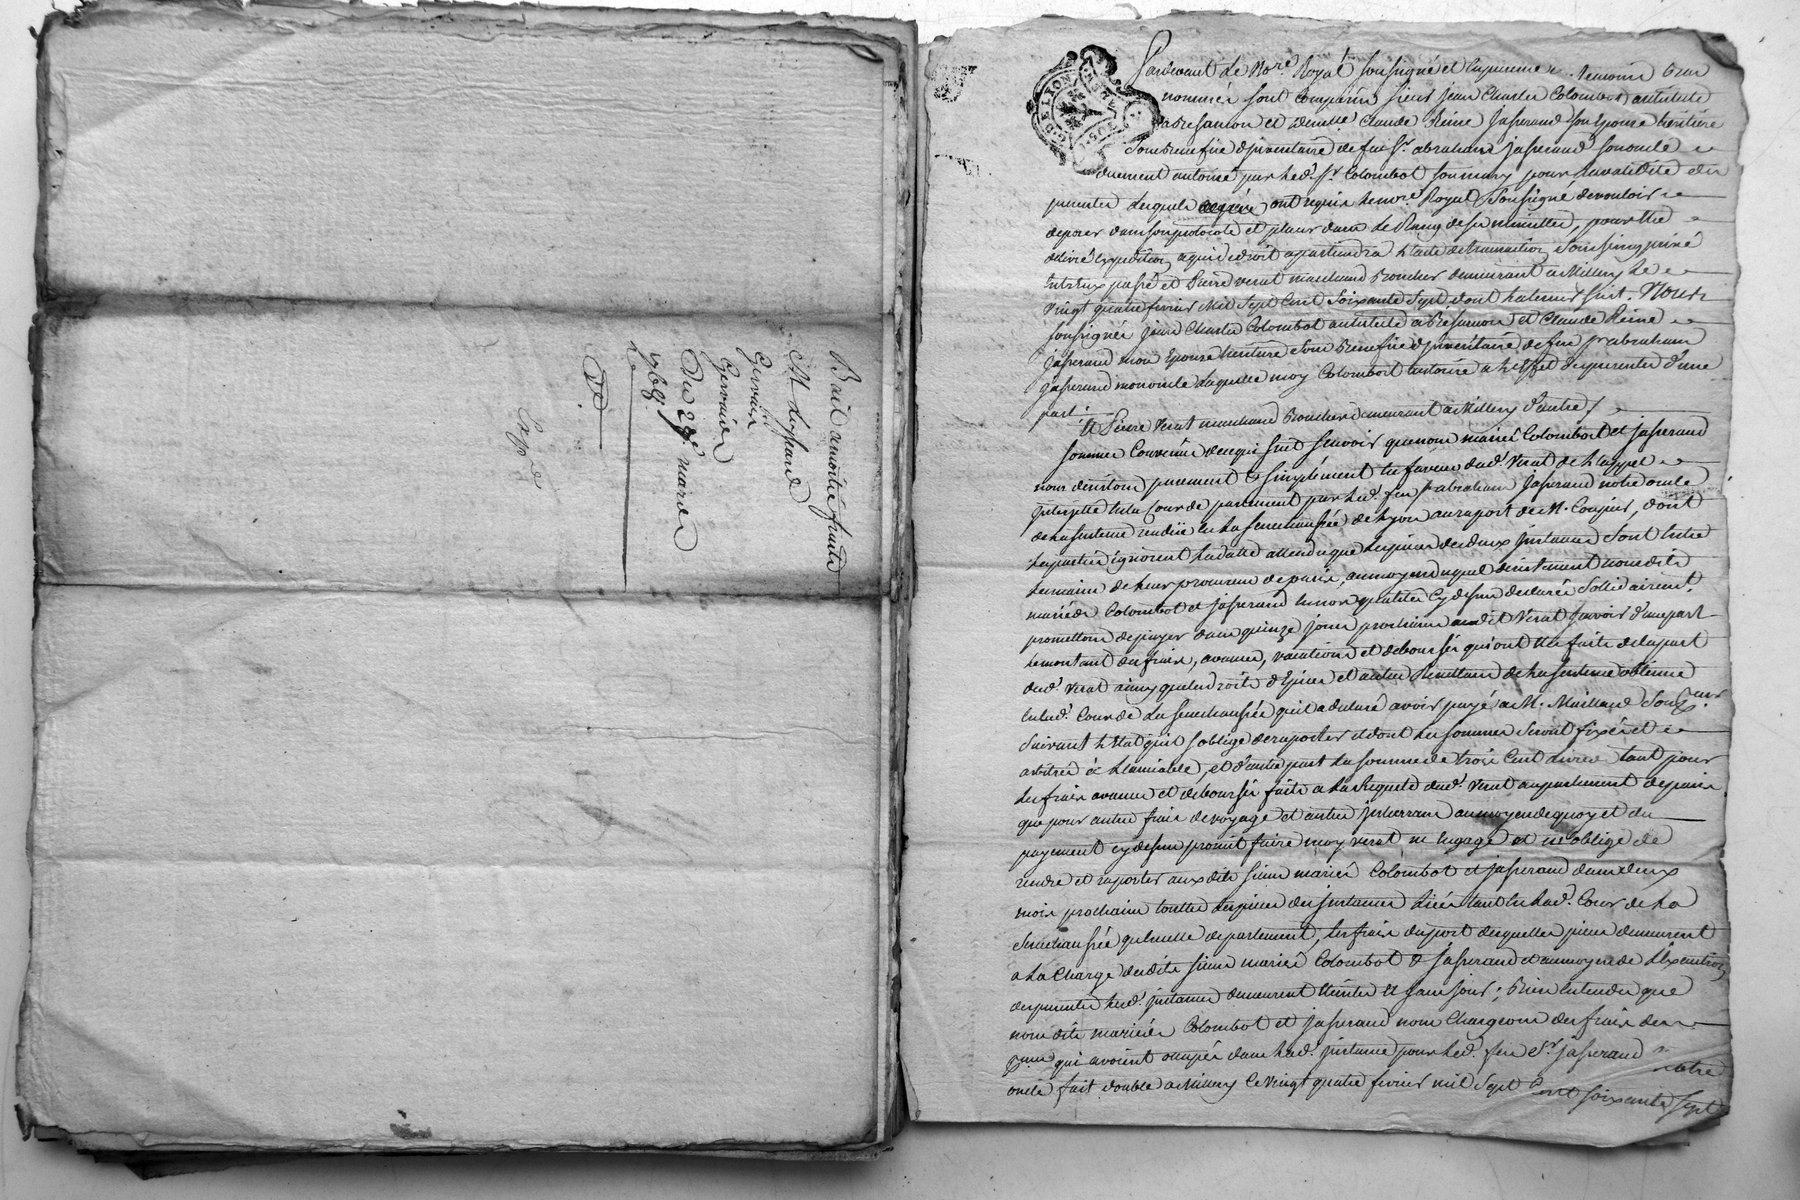 Bail amoitié fruits
M Lassare
Gervais
Gervais
Du 29e mars
1767
Expé
G. DE LYON
Pardevant Le No.re Royal soussigné et en presence des temoins bas
nommés sont comparus sieur jean Charles Colombot artiste
a Besancon et demlle Claude Reine jasserand son Epouse heritiere
sous Benefice d'inventaire de feu Sr. abraham jasserand son oncle
duement autorisé par led. sr Colombot son mary pour la validité des
presentes Lesquels ont requis le nore Royal soussigné de vouloir
deposer dans son protocole et placer dans le Rang de ses minuttes, pour etre
delivré Expedition a qui de droit apartiendra L'acte de transaction sous seing privé
Entr'eux passé et Pierre verat marchand Boucher demeurant a Millery Le
vingt quatre fevrier Mil Sept Cent Soixante Sept dont la teneur suit. Nous
soussignés jean Charles Colombot artiste a Besancon et Claude Reine
jasserand mon Epouse heritiere sous Benefice d'inventaire de feu sr abraham
jasserand mon oncle Laquelle moy Colombot autorise a L'effet des presentes d'une
part
Et Pierre Verat marchand Boucher demeurant a Millery d'autre /
sommes Convenus de ce qui suit scavoir que nous mariés Colombot et jasserand
nous desistons purement & simplement en faveur dud. Verat de L'appel
interjetté en la Cour de parlement par led. feu sr abraham jasserand notre oncle
de la sentence rendue en La senechaussée de Lyon au raport de M. Coupier, dont
Les parties ignorent La datte attendu que Les pieces des deux instances sont entre
Les mains de Leurs procureurs de paris, au moyen duquel desistement nous dits
mariés Colombot et jasserand en nos qualités Cy dessus declarés solidairement
promettons de payer dans quinze jours prochains audit Verat scavoir d'une part
Le montant des frais, avances, vacations et deboursés qui ont été faits de la part
dud. Verat ainsy que les droits d'Epices et autres Resultans de la sentence obtenue
en lad. Cour de La senechaussée qu'il a declaré avoir payé a M. Maillard son
suivant L'Etat qu'il s'oblige de raporter et dont Les sommes seront fixées et
arbitrées à L'amiable, et d'autre part La somme de trois Cent Livres tant pour
Les frais avances et deboursés faits a La Requete dud. Verat au parlement de paris
que pour autres frais de voyage et autres au moyen de quoy et du
payement cy dessus promit faire moy verat m'Engage et m'oblige de
rendre et raporter aux dits sieurs mariés Colombot et jasserand dans deux
mois prochains touttes Les pieces des instances Liées tant en Lad. Cour de La
senechaussée qu'en celle de parlement, Les frais du port desquelles pieces demeurent
a La Charge des dits sieurs mariés Colombot & jasserand et au moyen de L'Execution
des presentes Lesd. instances demeurent Eteintes et sans suites; Bien Entendu que
nous dits mariés Colombot et jasserand nous Chargeons des frais des
qui avoient occupés dans Lad. instance pour led. feu Sr. jasserand notre
oncle fait double a Millery Ce vingt quatre fevrier mil Sept Cent soixante sept